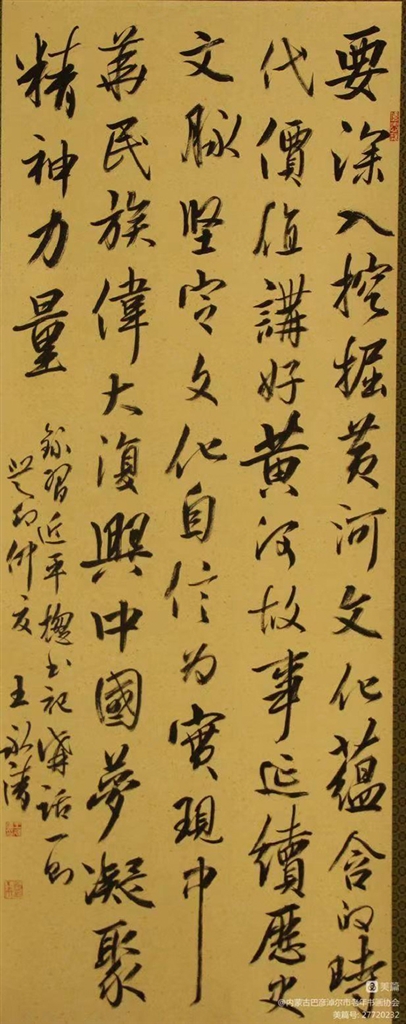 要深入挖掘黄河文化蕴含的時
代價值講好黄河故事延續歷史
文脉坚定文化自信为實現中
華民族偉大復興中國夢凝聚
精神力量
錄習近平總书记講話一則
仲夏 王
美篇
@内蒙古巴彦淖尔市老年书画协会
美篇号: 27720232